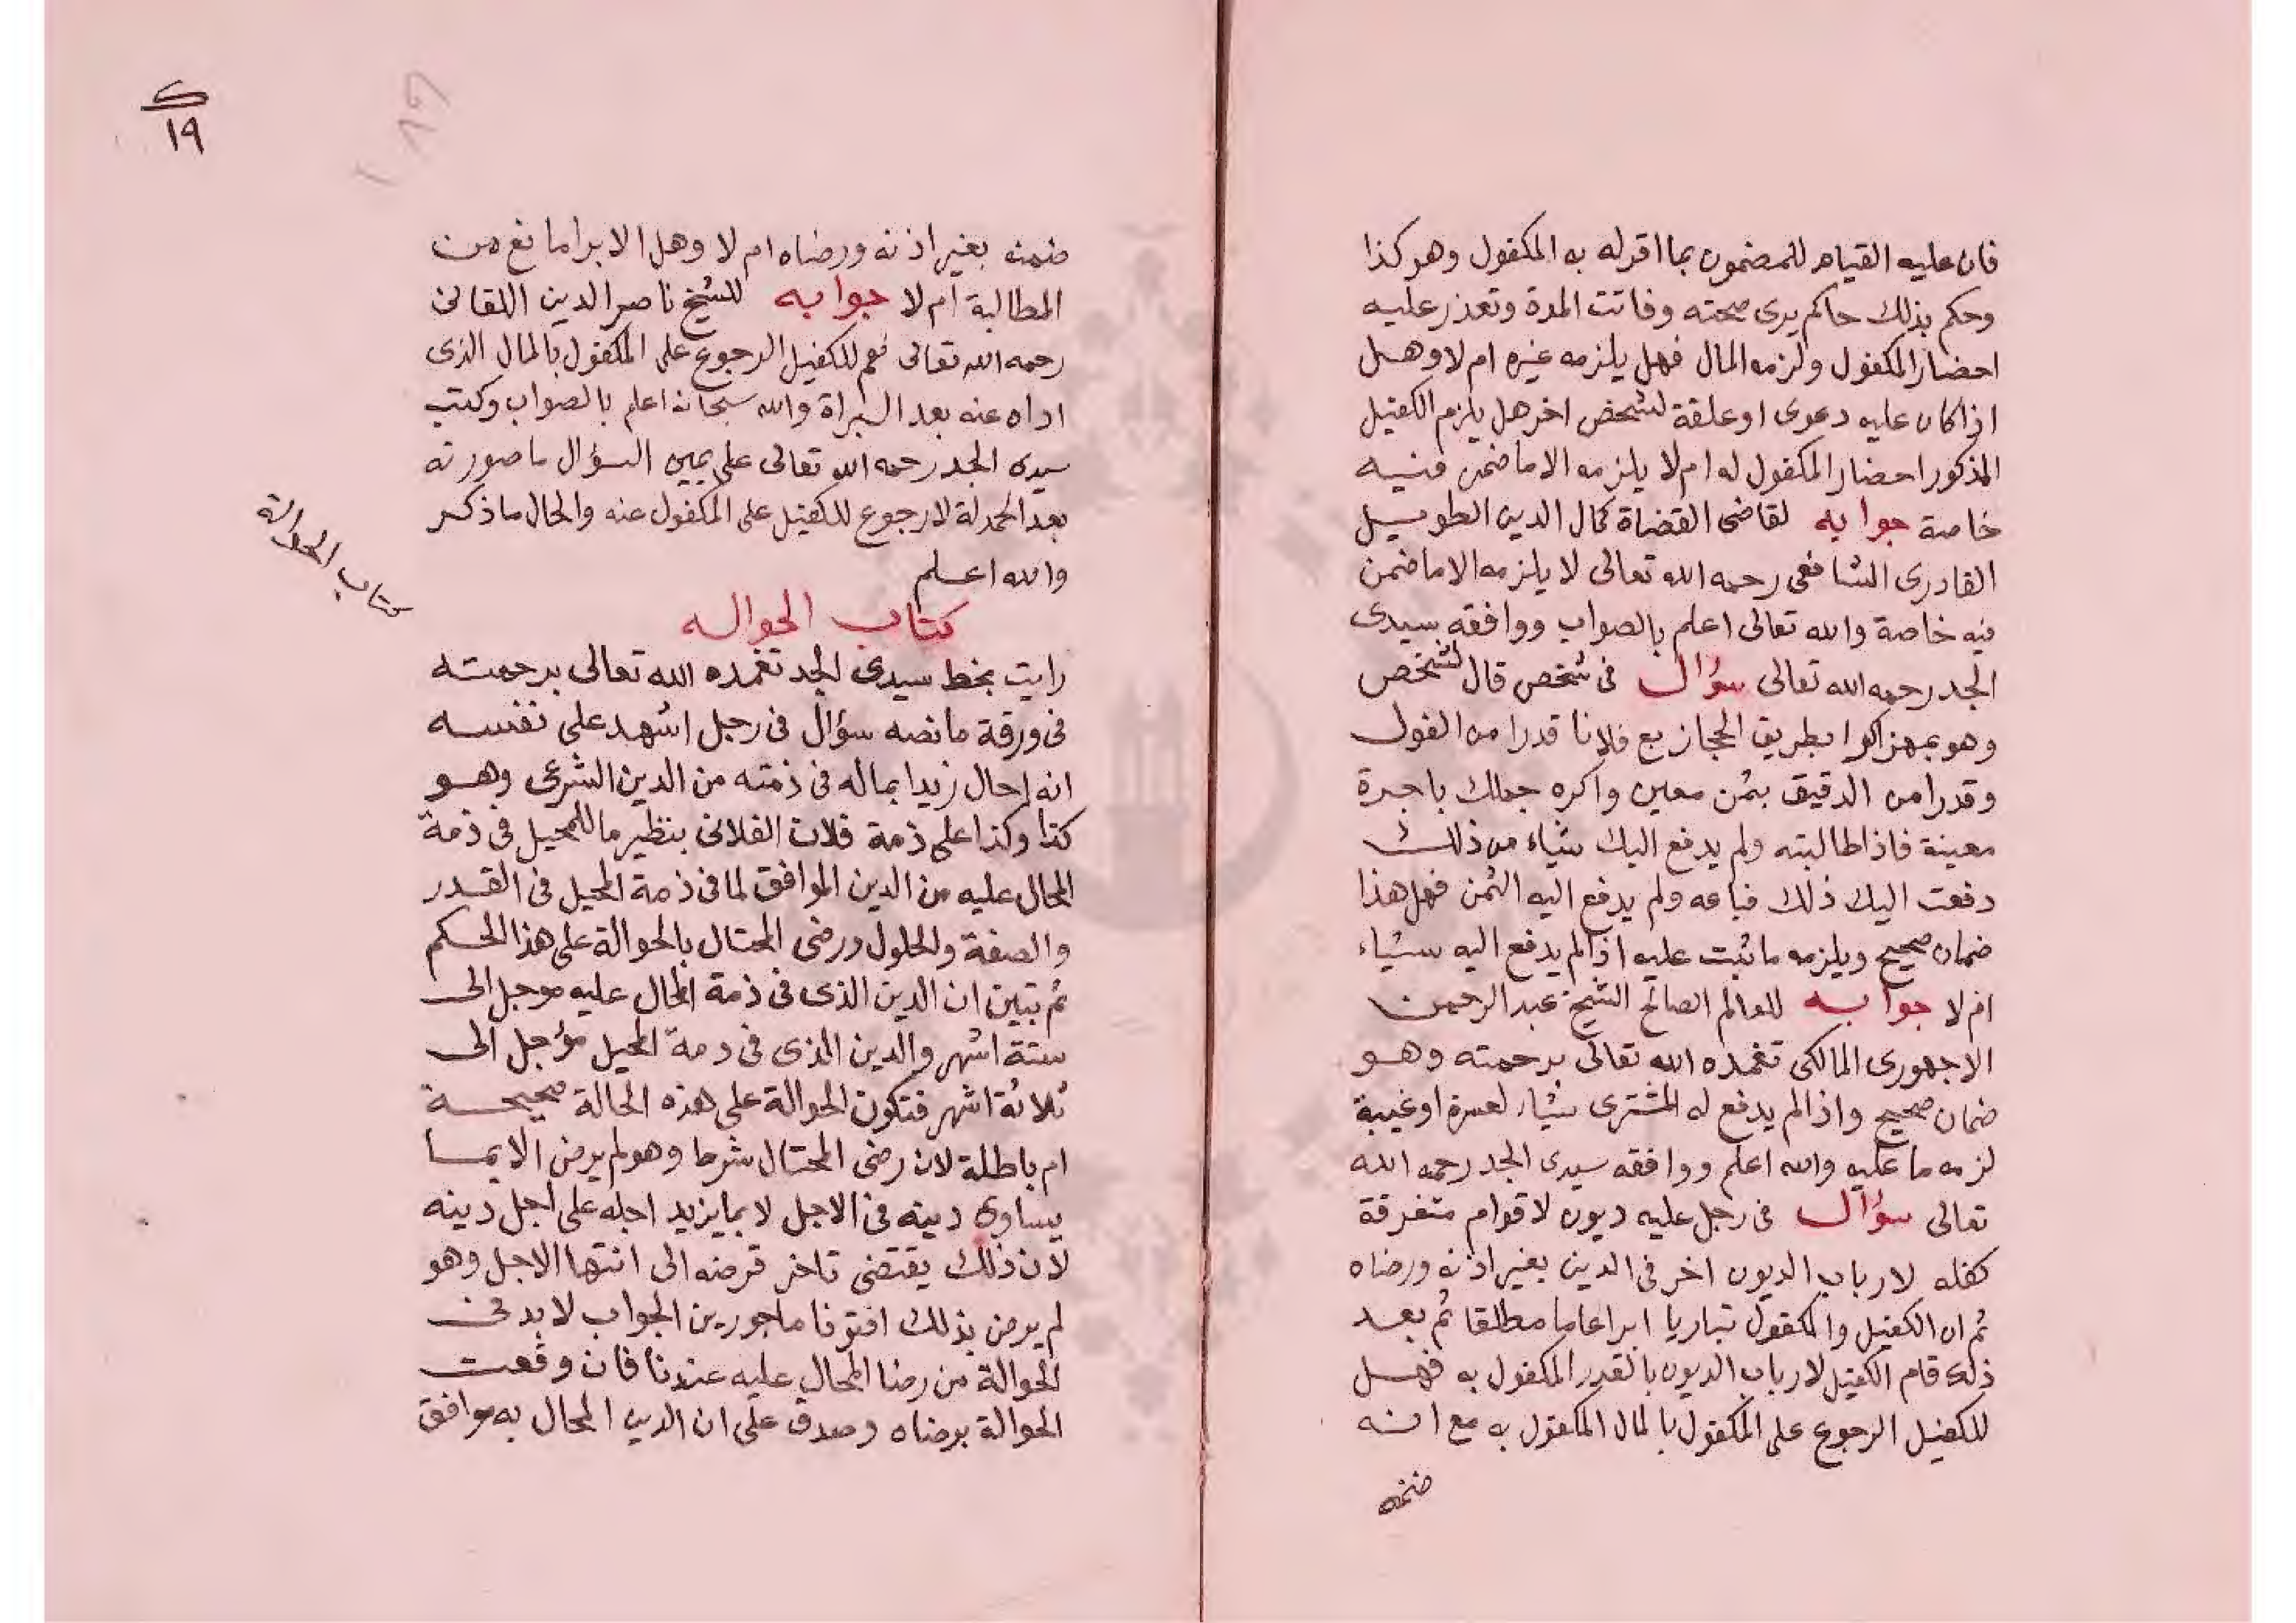 فان عليه القيام للمضمون بما اقر له به المكفول وهو كذا
وحكم بذلك حاكم يرى صحته وفاتت المدة وتعذر عليه
احضار المكفول ولزمه المال فهل يلزمه غيره ام لا وهل
اذا كان عليه دعوى او علقة لشخص اخر هل يلزم الكفيل
المذكور احضار المكفول له ام لا يلزمه الا ما ضمن فيه
خاصة جوابه لقاضى القضاة كمال الدين الطويل
القادرى الشافعى رحمه الله تعالى لا يلزمه الا ما ضمن
فيه خاصة والله تعالى اعلم بالصواب ووافقه سيدى
الجد رحمه الله تعالى سؤال فى شخص قال لشخص
وهو بطريق الحجاز بع فلانا قدرا من الفول
وقدرا من الدقيق بثمن معين واكره جملك باجرة
معينة فاذا طالبته ولم يدفع اليك شياء من ذلك
دفعت اليك ذلك فباعه ولم يدفع اليه الثمن فهل هذا
ضمان صحيح ويلزمه ما ثبت عليه اذا لم يدفع اليه شياء
ام لا جوابه للعالم الصالح الشيخ عبد الرحمن
الاجهورى المالكى تغمده الله تعالى برحمته وهو
ضمان صحيح واذا لم يدفع له المشترى شياء لعسرة او غيبة
لزمه ما عليه والله اعلم ووافقه سيدى الجد رحمه الله
تعالى سؤال فى رجل عليه ديون لاقوام متفرقة
كفله لارباب الديون اخر فى الدين بغير اذنه ورضاه
ثم ان الكفيل والمكفول تباريا ابرا عاما مطلقا ثم بعد
ذلك قام الكفيل لارباب الديون بالقدر المكفول به فهل
للكفيل الرجوع على المكفول بالمال المكفول به مع انه
ضمنه
١٩
ضمنه بغير اذنه ورضاه ام لا وهل الابرا مانع من
المطالبة ام لا جوابه للشيخ ناصر الدين اللقانى
رحمه الله تعالى نعم للكفيل الرجوع على المكفول بالمال الذى
اداه عنه بعد البراة والله سبحانه اعلم بالصواب وكتب
سيدى الجد رحمه الله تعالى على يمين السؤال ما صورته
بعد الحمدلة لا رجوع للكفيل على المكفول عنه والحال ما ذكر
والله اعلم
كتاب الحواله
كتاب الحوالة
رايت بخط سيدى الجد تغمده الله تعالى برحمته
فى ورقة ما نصه سؤال فى رجل اشهد على نفسه
انه احال زيدا بماله فى ذمته من الدين الشرعى وهو
كذا وكذا على ذمة فلان الفلانى بنظير ما للمحيل فى ذمة
المحال عليه من الدين الموافق لما فى ذمة المحيل فى القدر
والصفة والحلول ورضى المحتال بالحوالة على هذا الحكم
ثم تبين ان الدين الذى فى ذمة المحال عليه موجل الى
ستة اشهر والدين الذى فى ذمة المحيل مؤجل الى
ثلاثة اشهر فتكون الحوالة على هذه الحالة صحيحة
ام باطلة لان رضى المحتال شرط وهو لم يرض الا بما
يساوى دينه فى الاجل لا بما يزيد اجله على اجل دينه
لان ذلك يقتضى تاخر قرضه الى انتها الاجل وهو
لم يرض بذلك افتونا ماجورين الجواب لا بد فى
الحوالة من رضا المحال عليه عندنا فان وقعت
الحوالة برضاه وصدق على ان الدين المحال به موافق